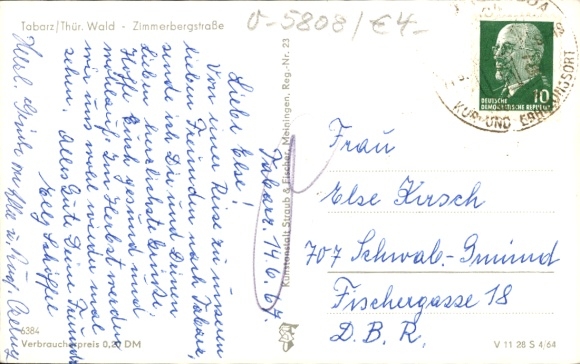 Tabarz/Thür. Wald - Zimmerbergstraße
V-5808/€4-
Tabarz 14.6.67.
Liebe Else!
Von einer Reise zu unseren
lieben Freunden nach Tabarz,
sende ich Dir und Deinen
Lieben herzlichste Grüße.
Hoffe Euch gesund und
wohlauf. Im Herbst werden
wir uns wohl wieder mal
sehen. Alles Gute Deine Freundin
Elly Schöffel
Herzl. Grüße an Alle
6384
Verbraucherpreis 0,20 DM
Kunstanstalt Straub & Fischer, Meiningen, Reg.-Nr. 23
DEUTSCHE
DEMOKRATISCHE REPUBLIK
10
KUR- UND ERHOLUNGSORT
Frau
Else Kirsch
707 Schwäb.-Gmünd
Fischergasse 18
D.B.R.
V 11 28 S 4/64